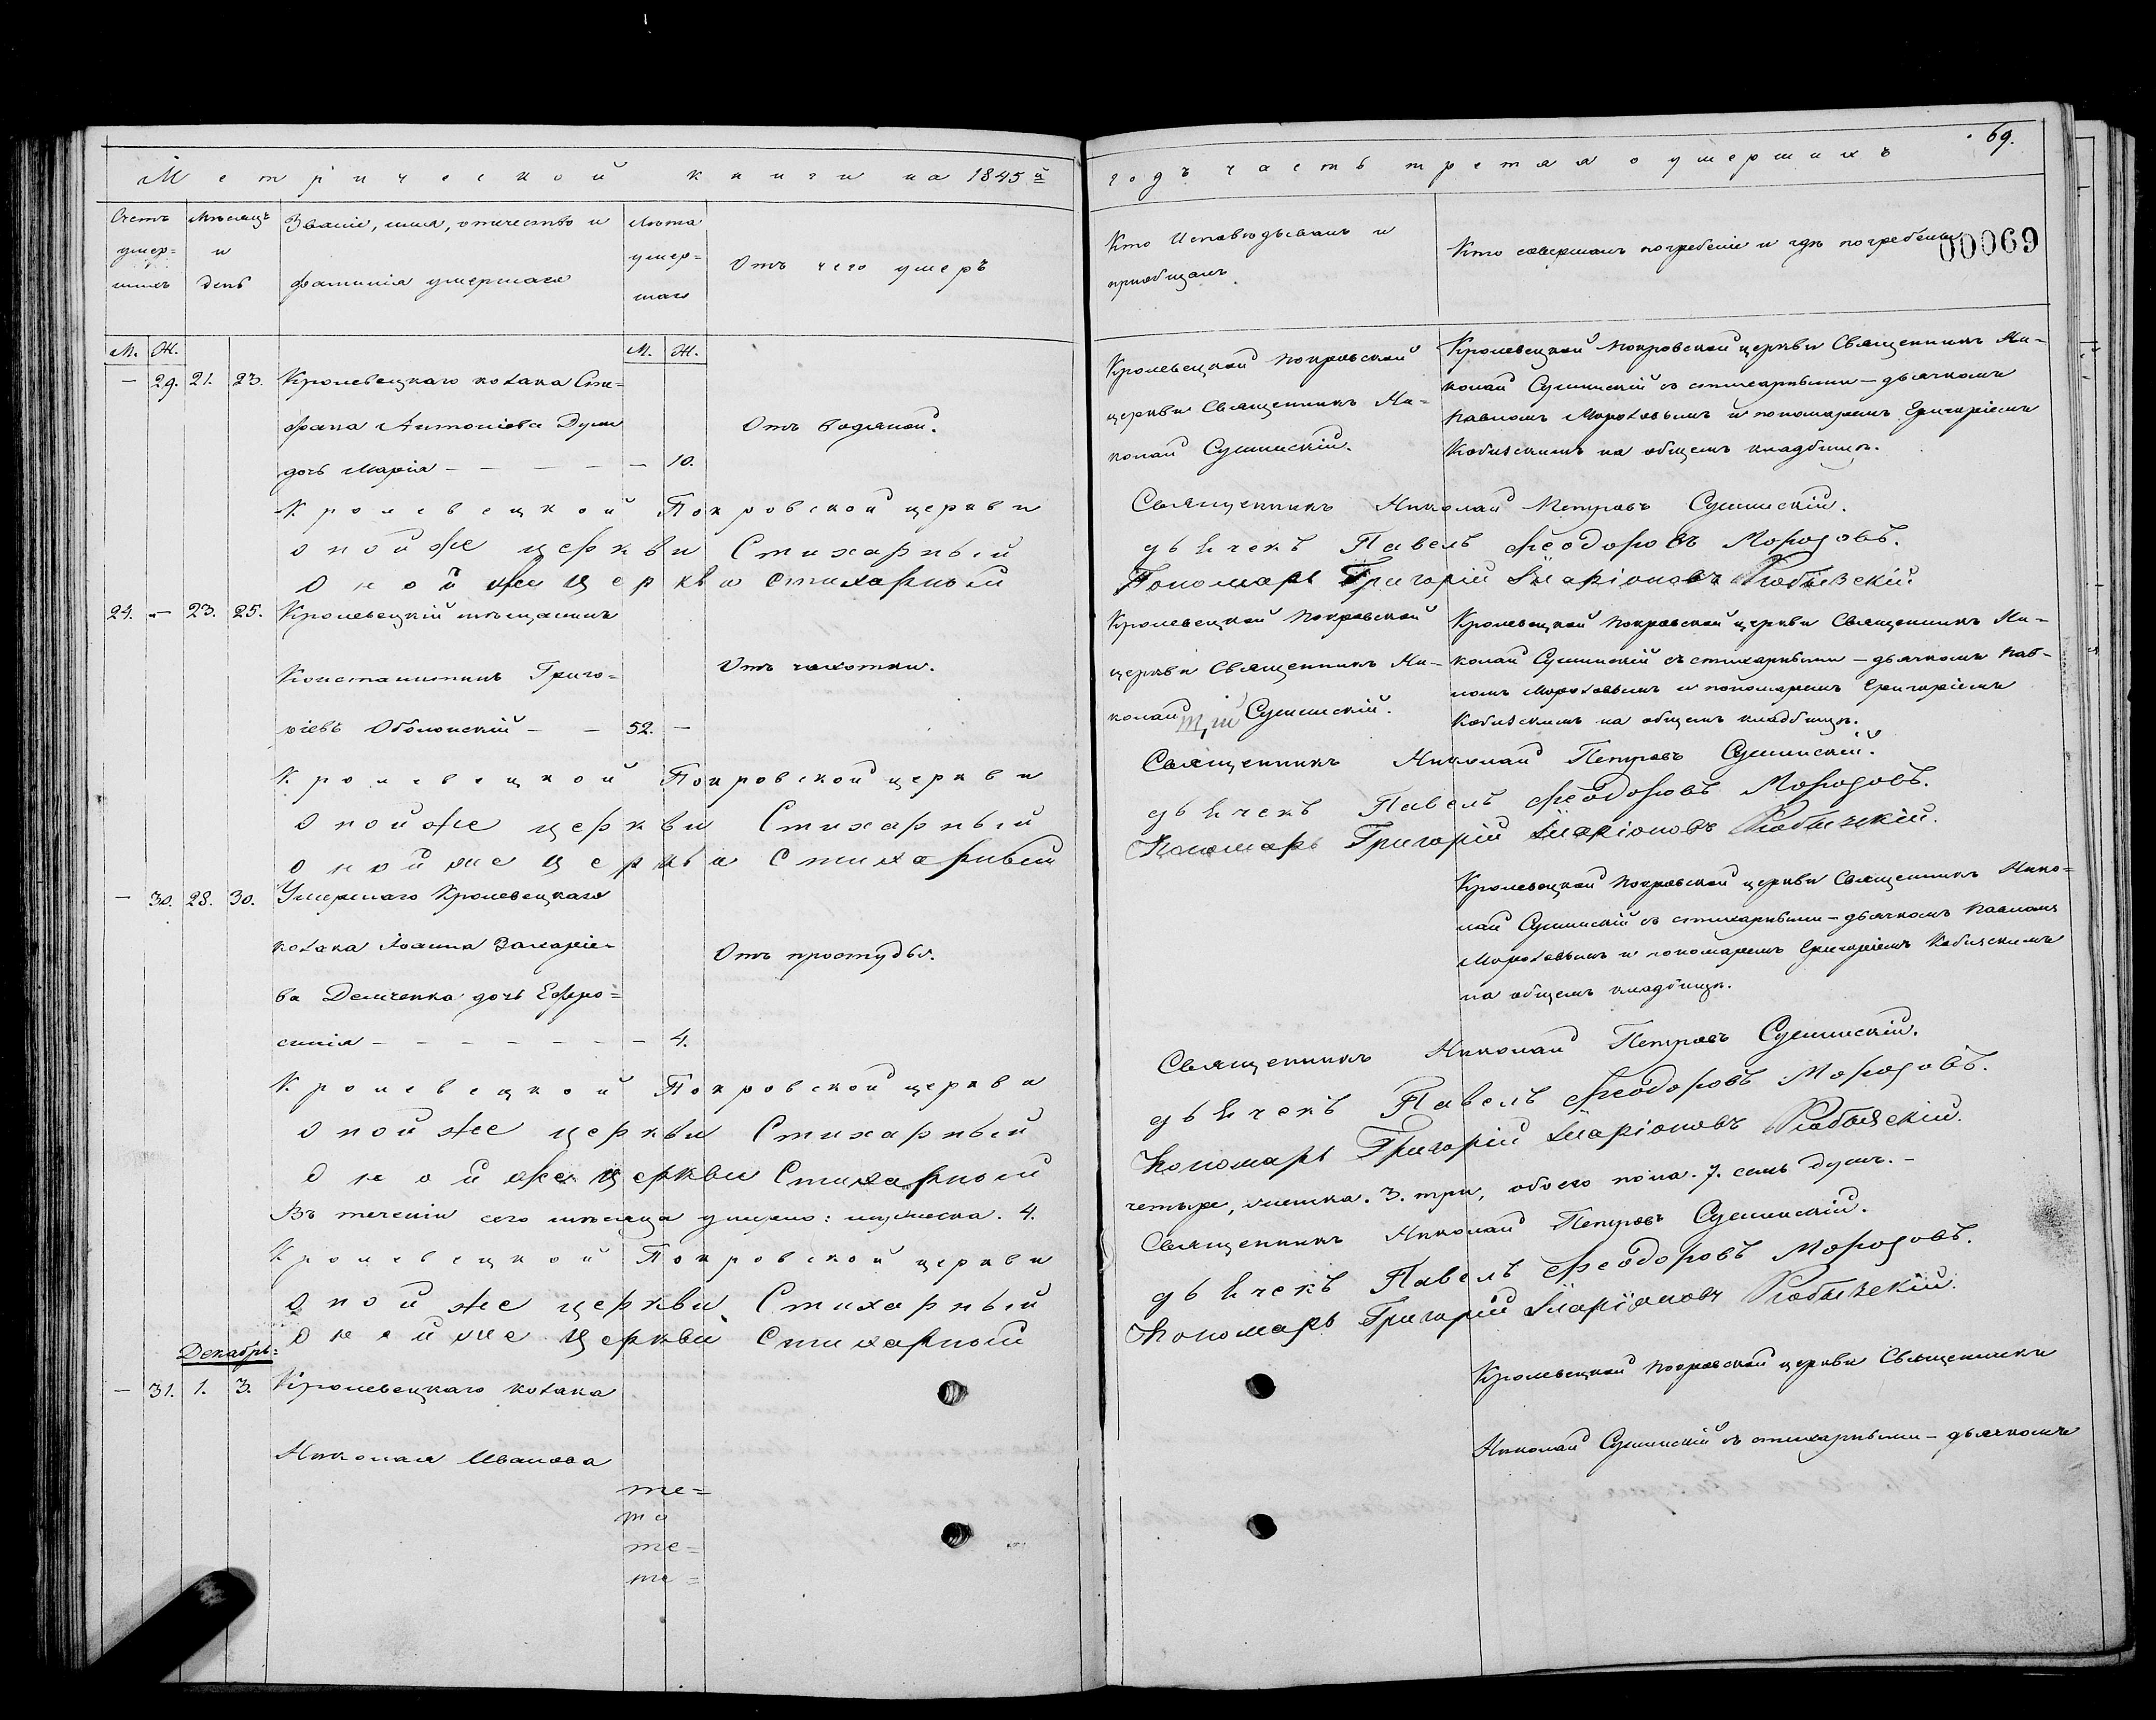 Метрической книги на 1845й
Счетъ умер= шихъ
Мѣсяцъ и день
Званіе, имя, отчество и
фамилія умершаго
Лѣта умер= шаго
Отъ чего умеръ
М. Ж.
М. Ж.
— 29. 21. 23. Кролевецкаго козака Сте=
фана Антоніева Думы
дочь Марія — — — — — 10.
Отъ водяной.
Кролевецкой Покровской церкви
онойже церкви Стихарный
онойже церкви стихарный
24. — 23. 25. Кролевецкій мѣщанинъ
Константинъ Григо=
ріевъ Оболонскій — — 52. —
Отъ чахотки.
Кролевецкой Покровской церкви
онойже церкви Стихарный
онойже церкви Стихарный
— 30. 28. 30. Умершаго Кролевецкаго
козака Іоанна Захаріе=
ва Демченка дочь Евфро=
синія — — — — — — — 4.
Отъ простуды.
Кролевецкой Покровской церкви
онойже церкви Стихарный
онойже церкви Стихарный
Въ теченіи сего мѣсяца умерло: мужеска. 4.
Кролевецкой Покровской церкви
онойже церкви Стихарный
онойже церкви Стихарный
Декабрь=
— 31. 1. 3. Кролевецкаго козака
Николая Иванова
те=
та
те=
те=
69.
годъ часть третая о умершихъ
00069
Кто Исповѣдывалъ и
приобщалъ.
Кто совершалъ погребеніе и гдѣ погребены
Кролевецкой Покровской
церкви Священникъ Ни=
колай Сушинскій.
Кролевецкой Покровской церкви Священникъ Ни=
колай Сушинскій съ стихарными — дьячкомъ
Павломъ Морозовымъ и пономаремъ Григоріемъ
Кобизскимъ на общемъ кладбищѣ.
Священникъ Николай Петровъ Сушинскій.
дьячекъ Павелъ Феодоровъ Морозовъ.
Пономарь Григорій Иларіоновъ Кобызскій
Кролевецкой Покровской
церкви Священникъ Ни=
колай Сушинскій.
Кролевецкой Покровской церкви Священникъ Ни=
колай Сушинскій съ стихарными — дьячкомъ Пав=
ломъ Морозовымъ и пономаремъ Григоріемъ
Кобизскимъ на общемъ кладбищѣ.
Священникъ Николай Петровъ Сушинскій.
дьячекъ Павелъ Феодоровъ Морозовъ.
Пономарь Григорій Иларіоновъ Кобызскій.
Кролевецкой Покровской церкви Священникъ Нико=
лай Сушинскій съ стихарными — дьячкомъ Павломъ
Морозовымъ и пономаремъ Григоріемъ Кобизскимъ
на общемъ кладбищѣ.
Священникъ Николай Петровъ Сушинскій.
дьячекъ Павелъ Феодоровъ Морозовъ.
Пономарь Григорій Иларіоновъ Кобызскій.
четыре, женска. 3. три, обоего пола. 7. семь душъ. —
Священникъ Николай Петровъ Сушинскій.
дьячекъ Павелъ Феодоровъ Морозовъ.
Пономарь Григорій Иларіоновъ Кобызскій.
Кролевецкой Покровской церкви Священники
Николай Сушинскій съ стихарными — дьячкомъ